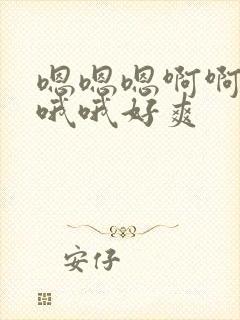 嗯嗯嗯啊啊
哦哦好爽
安仔